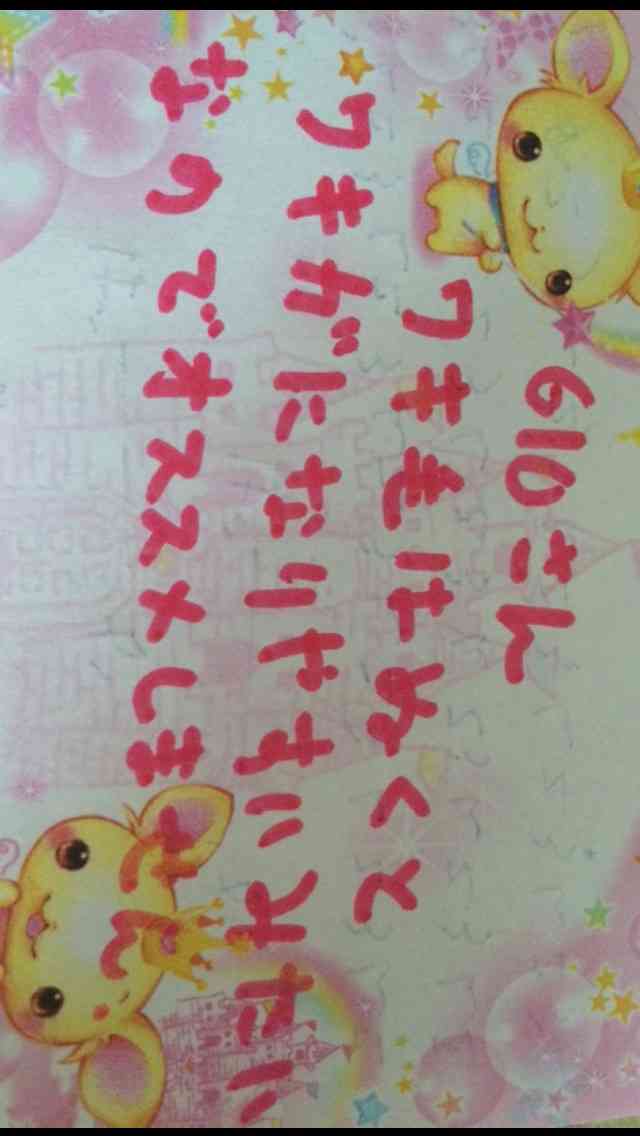 610さん
ワキもはぬくと
ワキガになりやすいみたい
なのでオススメしません